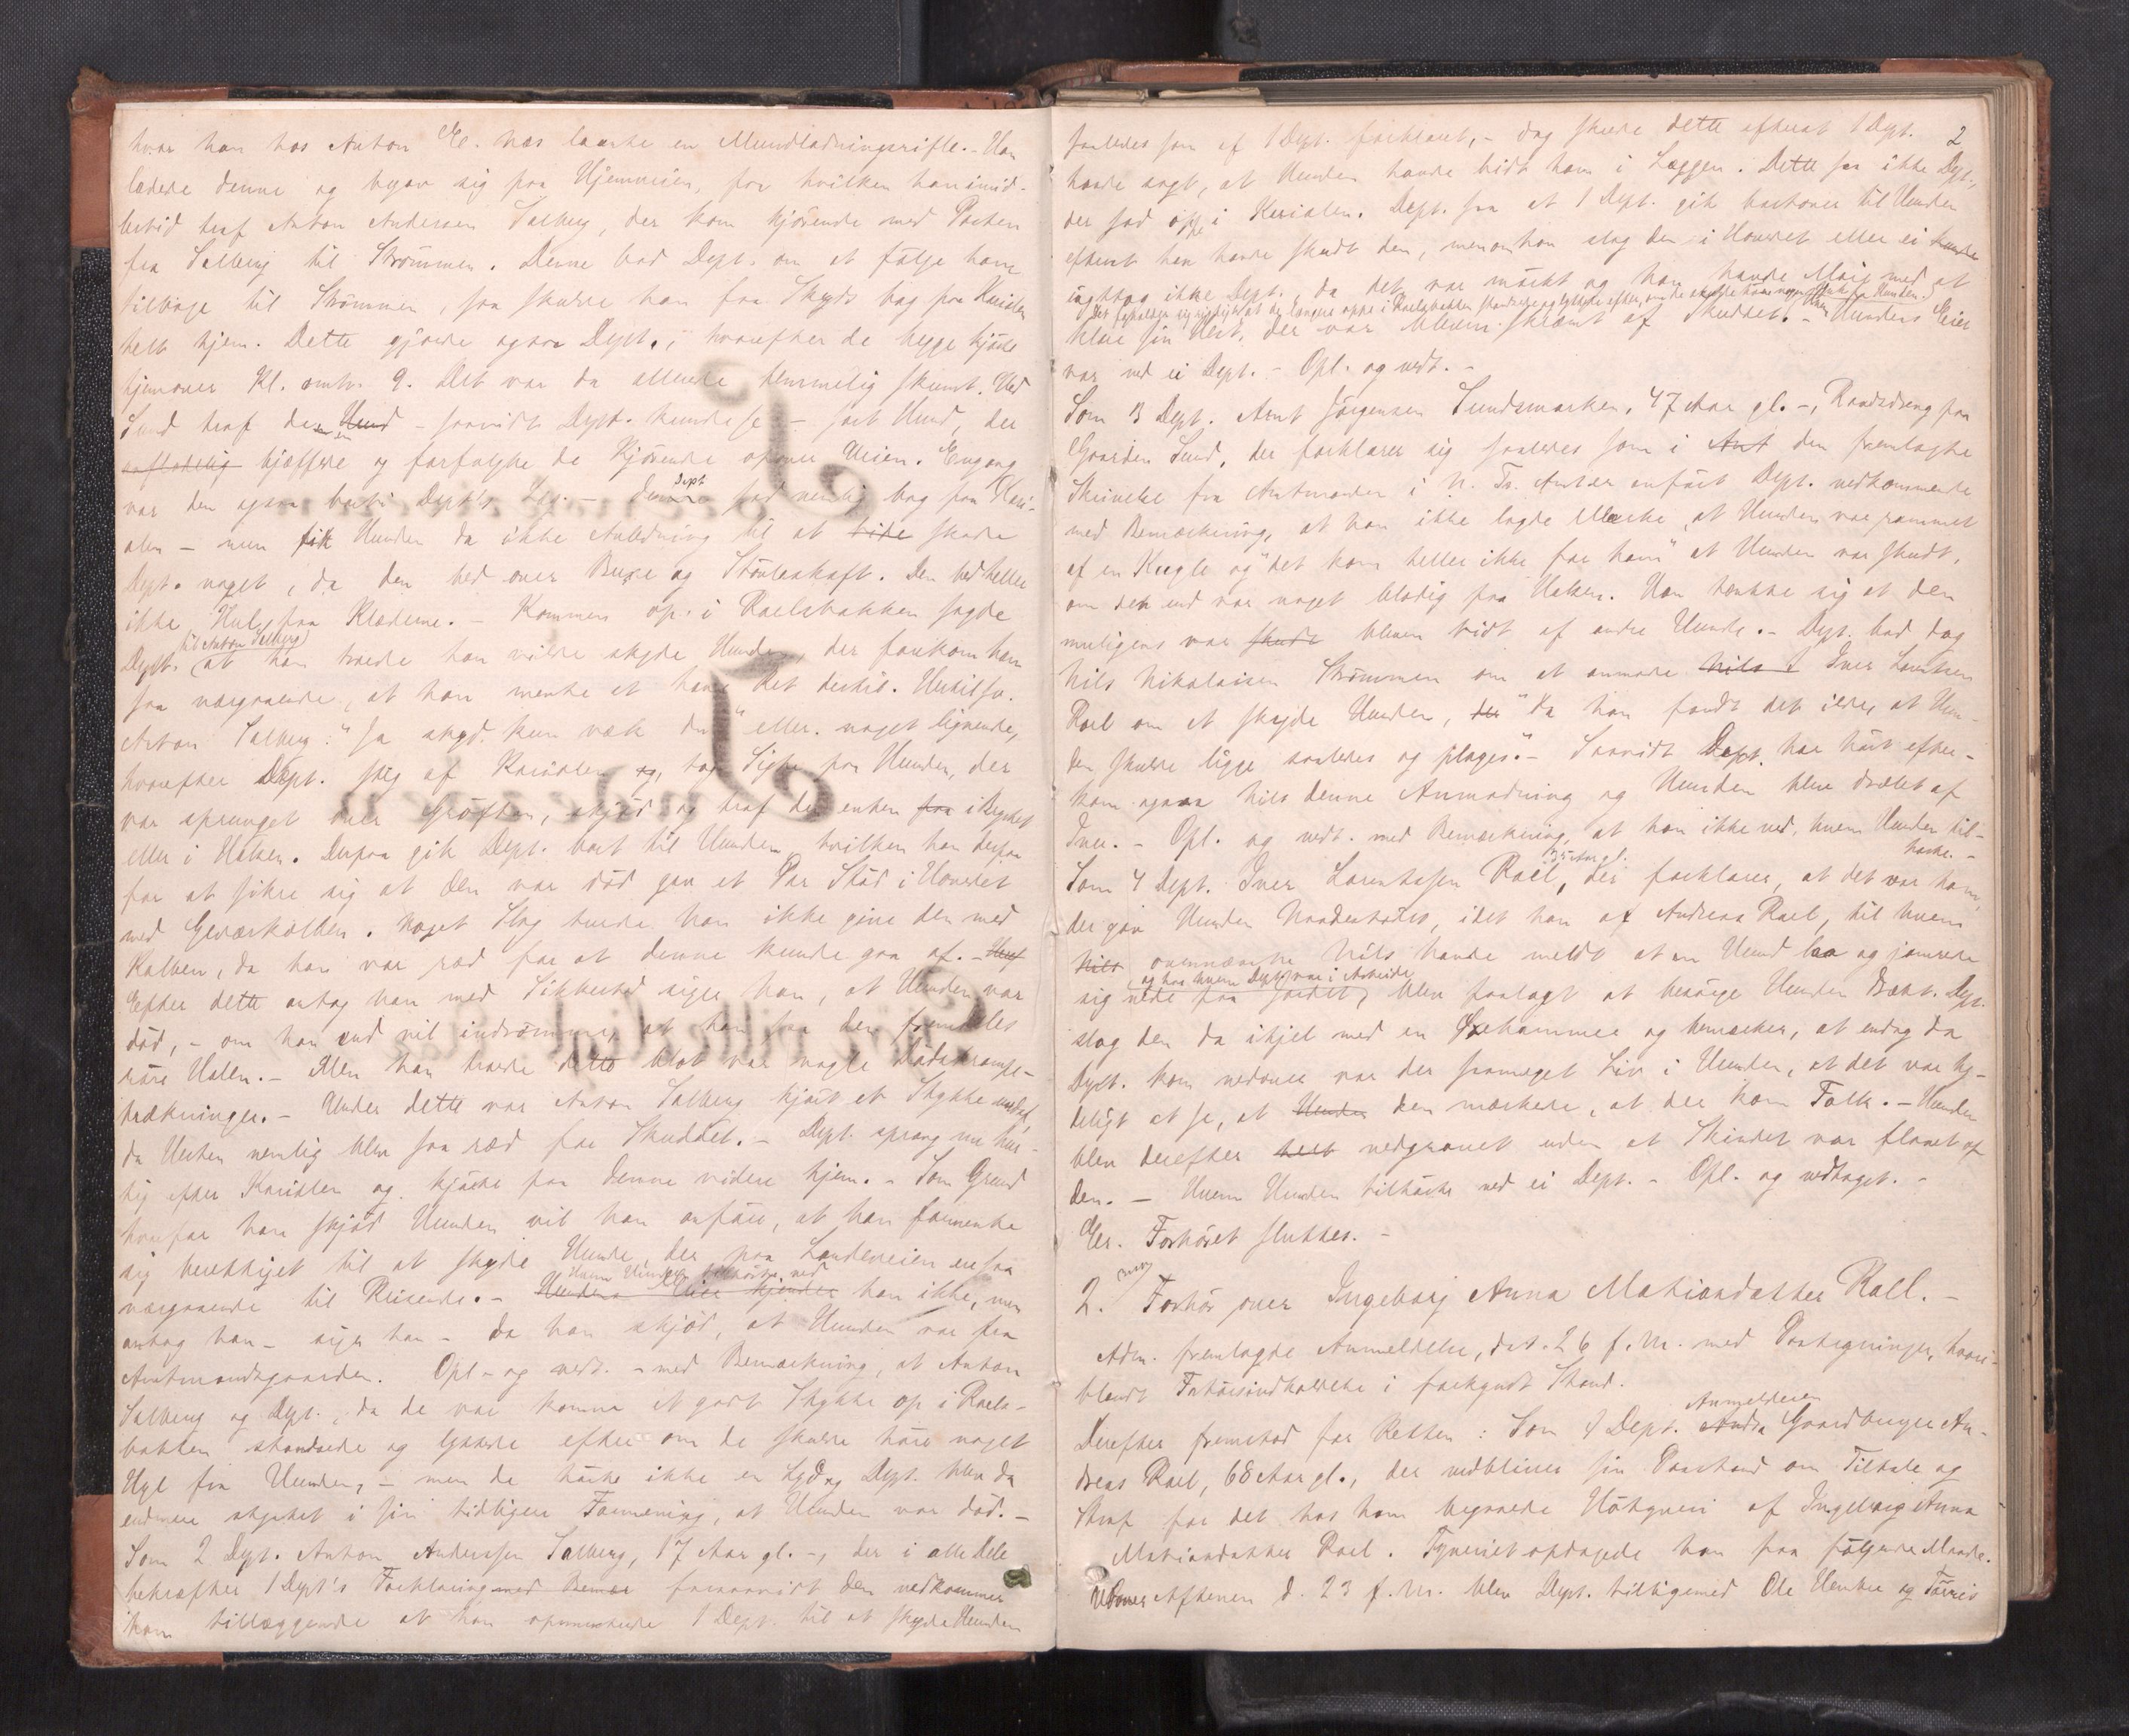 hvor han hos Anton E. Næs laante en Mundladningsrifle. - Han
ladede denne og begav sig paa Hjemveien, paa hvilken han imid-
lertid traf Anton Andersen Salberg, der kom kjørende med Posten
fra Salberg til Strømmen. Denne bad Dept. om at følge ham
tilbage til Strømmen, saa skulde han faa Skyds bag paa Kariolen
helt hjem. Dette gjorde ogsaa Dept., hvorefter de begge kjørte
hjemover Kl. omtr. 9. Det var da allerede temmelig skumt. Ved
Sund traf de en Hund - saavidt Dept. kunde se - sort Hund, der
bjæffede og forfulgte de Kjørende opover Veien. Engang
var den ogsaa borti Dept's - denne Dept sad nemlig bag paa Kari-
olen - men fik Hunden da ikke Anledning til at bide skade
Dept. noget, da den bed over Buxe og Støvleskaft. Den bed heller
ikke Hul paa Klæderne. - Kommen op i Raelsbakken sagde
Dept. (til Anton Salberg) at han troede han vilde skyde Hunden, der forekom ham
saa nærgaaende, at han mente at have Ret dertil. Hertil sv.
Anton Salberg: "Ja skyd kun væk du" eller noget lignende,
hvorefter Dept. steg af Kariolen og, tog Sigte paa Hunden, der
var sprunget over Grøften, skjød og traf den enten paa i Brystet
eller i Halsen. Derpaa gik Dept. bort til Hunden hvilken han derpaa
for at sikre sig at den var død gav et Par Stød i Hovedet
med Geværkolben. Noget Slag turde han ikke give den med
Kolben, da han var ræd for at denne kunde gaa af. -
Efter dette antog han med Sikkerhed siger han, at Hunden var
død, - om han end vil indrømme, at han saa den fremdeles
røre Halen. - Men han troede dette blot var nogle Dødskrampe-
trækninger. - Under dette var Anton Salberg kjørt et Stykke
da Hesten nemlig blev saa ræd for Skuddet. - Dept. sprang nu hur-
tig efter Kariolen og kjørte paa denne videre hjem. - Som Grund
hvorfor han skjød Hunden vil han anføre, at han formente
sig berettiget til at skyde Hunde, der paa Landeveien er saa
nærgaaende til Reisende. - Hvem Hunden tilhørte, ved
Hundens Eier kjender han ikke, men
antog han - siger han - da han skjød, at Hunden var fra
Amtmandsgaarden. Opl. og vedt. - med Bemærkning, at Anton
Salberg og Dept., da de var komne et godt Stykke op i Raels-
bakken standsede og lyttede efter om de skulde høre noget
Hyl fra Hunden, - men de hørte ikke en Lyd og Dept. blev da
endmere styrket i sin tidligere Formening, at Hunden var død. -
Som 2 Dept. Anton Anderssen Salberg, 17 Aar gl. -, der i alle Dele
bekræfter 1 Dept's Forklaring med Bemær forsaavidt den vedkommer
ham tillæggende at han opmuntrede 1 Dept. til at skyde Hunden
2
saaledes som af 1 Dept. forklaret, - dog skede dette efterat 1 Dept.
havde sagt, at Hunden havde bidt ham i Læggen. Dette saa ikke Dept.,
der sad oppe i Kariolen. Dept. saa at 1 Dept. gik bortover til Hunden
efterat han havde skudt den, men om han slog den i Hovedet eller ei
iagttog ikke Dept., da det var mørkt og han havde Møie med at
Det forholder sig rigtigt at de længere oppe i Raelsbakken standsede og lyttede efter, om de skulde høre nogen Lyd fra Hunden.
klare sin Hest, der var bleven skræmt af Skuddet. - Hvem Hundens Eier
var ved ei Dept. - Opl. og vedt. -
Som 3 Dept. Arnt Jørgensen Sundsmarken, 47 Aar gl. -, Raadsdreng paa
Gaarden Sund, der forklarer sig saaledes som i Amt den fremlagte
Skrivelse fra Amtmanden i N. Tr. Amt er anført Dept. vedkommende
med Bemærkning, at han ikke lagde Mærke, at Hunden var rammet
af en Kugle og "det kom heller ikke for ham" at Hunden var skudt,
om den end var noget blodig paa Halsen. Han tænkte sig at den
muligens var skudt bleven bidt af andre Hunde. - Dept. bad dog
Nils Nikolaisen Strømmen om at anmode Nils I Iver Lorntsen
Rael om at skyde Hunden, der "da han fandt det ilde, at Hun-
den skulde ligge saaledes og plages". - Saavidt Dept. har hørt efter-
kom ogsaa Nils denne Anmodning og Hunden blev dræbt af
Iver. - Opl. og vedt. med Bemærkning, at han ikke ved, hvem Hunden til-
hørte. -
Som 4 Dept. Iver Lorentssen Rael, 35 Aar gl. der forklarer, at det var ham,
der gav Hunden Naadestødet, idet han af Andreas Rael, til hvem
Nils ovennævnte Nils havde meldt at en Hund laa og jamrede
sig nede paa Jordet, og hos hvem Dept. var i Arbeide blev paalagt at besørge Hunden dræbt. Dept.
slog den da ihjel med en Øxehammer og bemærker, at endog da
Dept. kom nedover var der saameget Liv i Hunden, at det var ty-
deligt at se, at Hunden den mærkede, at der kom Folk. - Hunden
blev derefter helt nedgravet uden at Skindet var flaaet af
den. - Hvem Hunden tilhørte ved ei Dept. - Opl. og vedtaget. -
Er. Forhøret sluttes. -
2. Forhør over Ingeborg Anna Mathiasdatter Rael. -
Adm. fremlagde Anmeldelse, dat. 26 f. M. med Paategninger, hvori-
blandt Forhørsindkaldelse i forkyndt Stand.
Derefter fremstod for Retten: Som 1 Dept. Anmelderen Andr Gaardbruger An-
dreas Rael, 68 Aar gl., der vedbliver sin Paastand om Tiltale og
Straf for det hos ham begaaede Høtyveri af Ingeborg Anna
Mathiasdatter Rael. Tyveriet opdagede han paa følgende Maade.
Udover Aftenen d. 23 f. M. blev Dept. tilligemed Ole Henke og Tørris